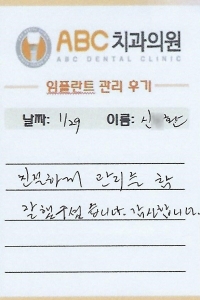 ABC 치과의원
ABC DENTAL CLINIC
임플란트 관리 후기
날짜: 1/29 이름: 신 환
친절하게 관리를 참
잘해주셨습니다. 감사합니다.